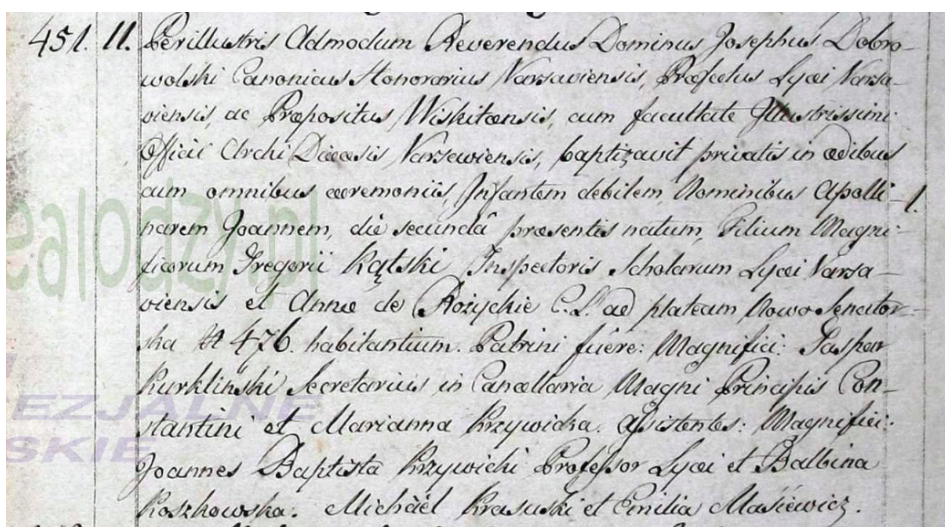 451. 11. Perillustris Admodum Reverendus Dominus Josephus Dobro-
wolski Canonicus Honorarius Varsaviensis, Præfectus Lycei Varsa-
viensis, ac Præpositus Wiskitensis, cum facultate Illustrissimi
Officii Archi Diæcesis Varsaviensis, baptizavit privatis in ædibus
cum omnibus cæremoniis, Infantem debilem, Nominibus Apolli- 1.
narem Joannem, die secundâ præsentis natum, Filium Magni-
ficorum Gregorii Kątski Inspectoris Scholarum Lycei Varsa-
viensis et Annæ de Rożyckie C.L. ad plateam Nowo Senator-
ska N 476. habitantium. Patrini fuere: Magnifici: Gaspar
Kurkliński Secretarius in Cancellaria Magni Principis Con-
stantini et Marianna Krzywicka. Assistentes: Magnifici:
Joannes Baptista Krzywicki Professor Lycei et Balbina
Koszkowska. Michäel Krasuski et Emilia Masiewicz.
ealodzy.pl
EZJALNE
SKIE